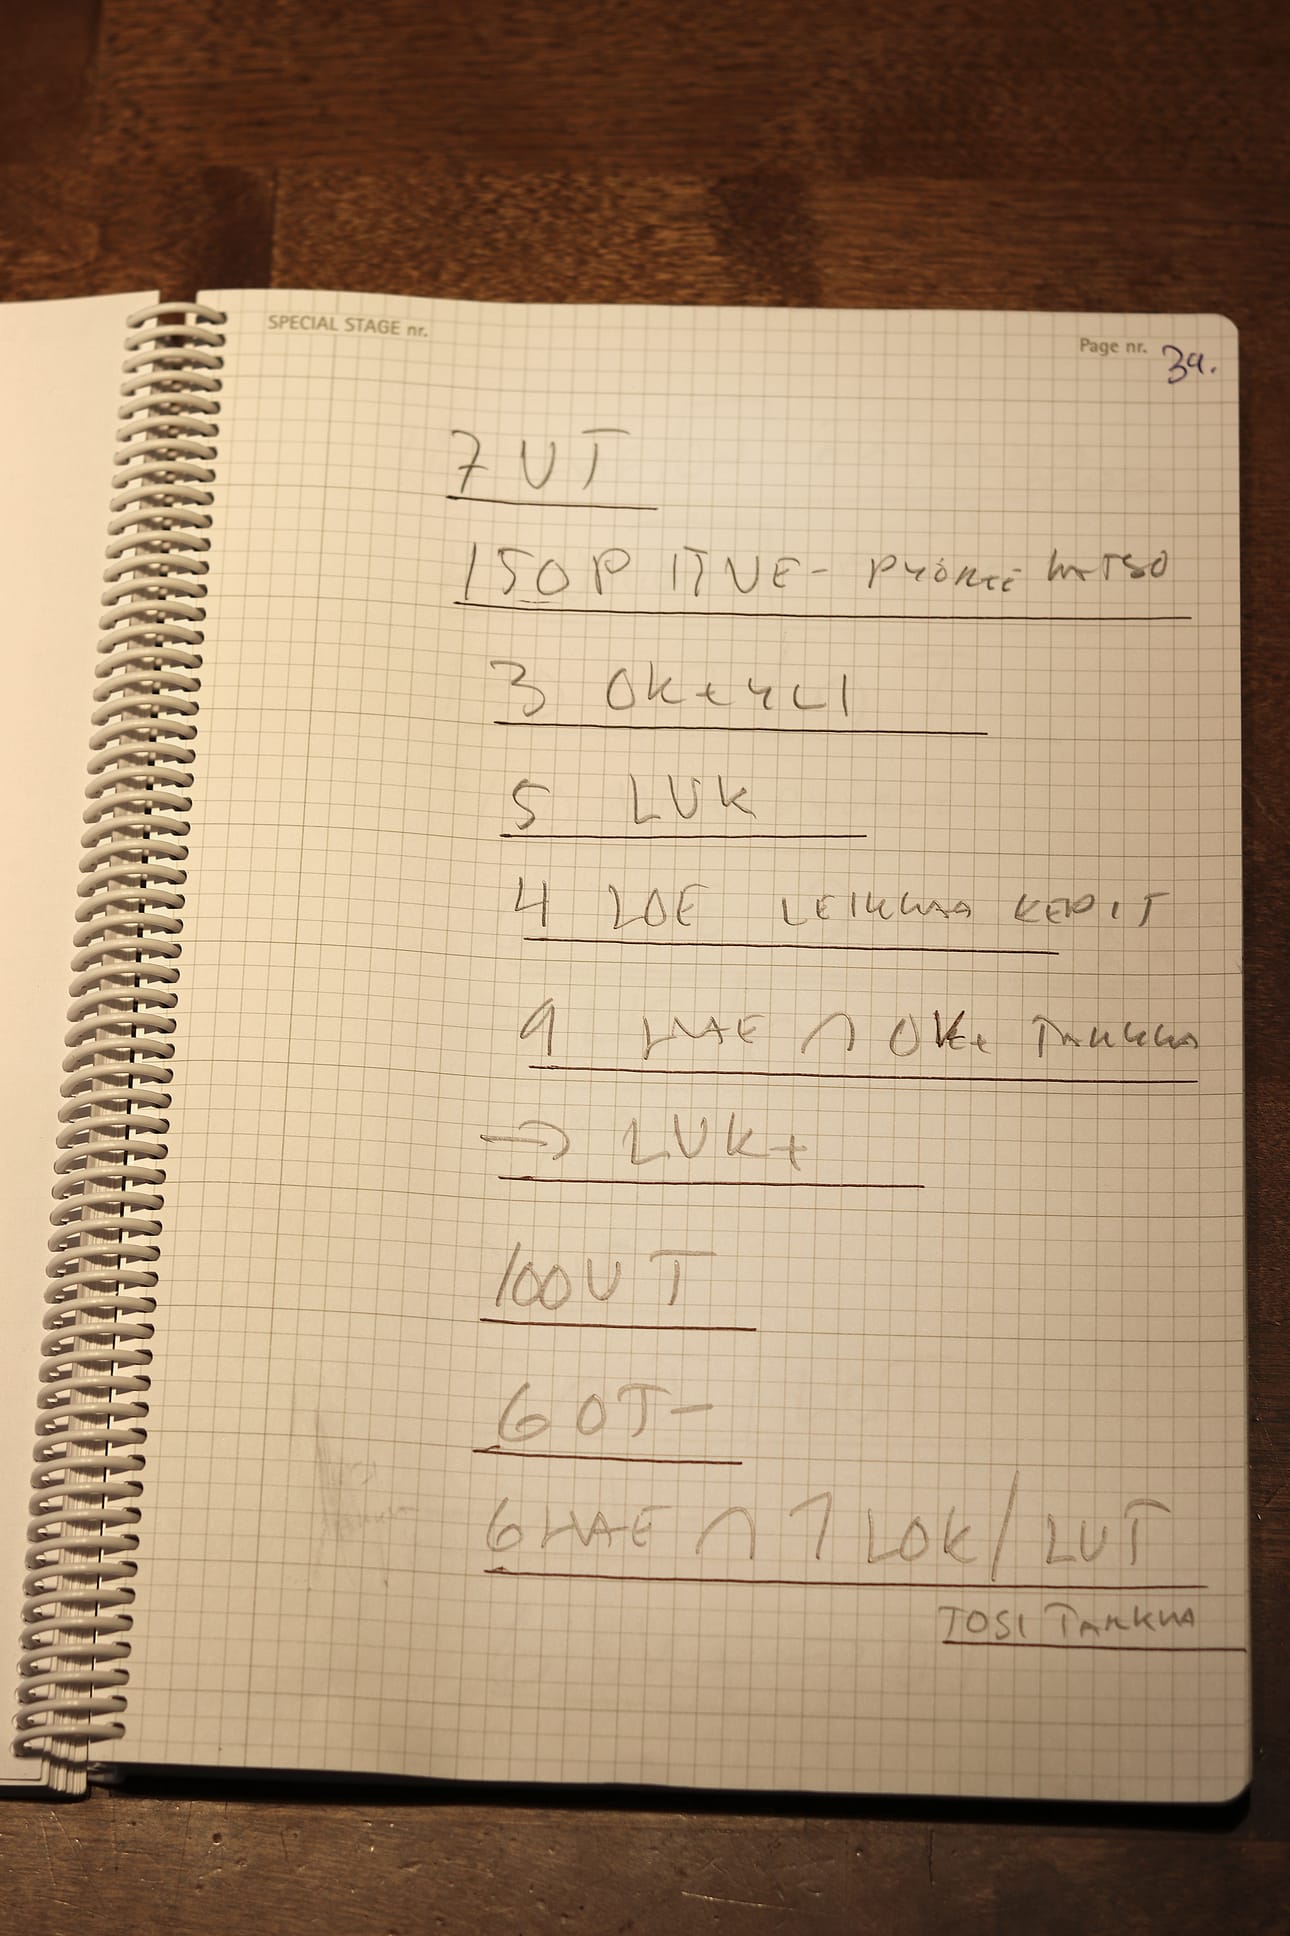 SPECIAL STAGE nr.
Page nr. 39.
7 U T
150 P ITVE- PYÖRII KATSO
3 OK+ YLI
5 LUK
4 LOE LEIKKAA KEPIT
9 HAE ∩ OK+ TARKKA
→ LUK+
100 U T
6 OT-
6 HAE ∩ 7 LOK / LUT
TOSI TARKKA